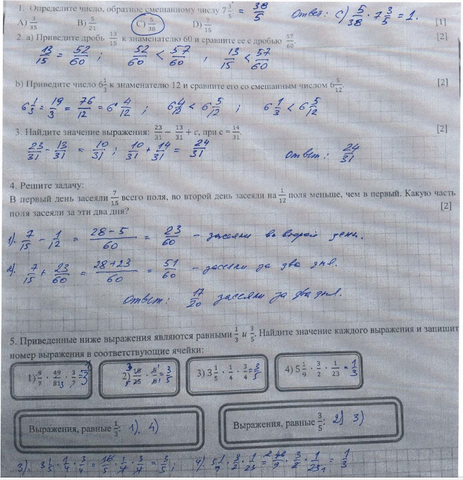 1. Определите число, обратное смешанному числу 7 3/5 = 38/5 Ответ: С) 5/38 · 7 3/5 = 1.
С) 5/38 [1]
2. а) Приведите дробь 13/15 к знаменателю 60 и сравните ее с дробью 57/60 [2]
13/15 = 52/60 52/60 < 57/60 , 13/15 < 57/60
b) Приведите число 6 1/3 к знаменателю 12 и сравните его со смешанным числом 6 5/12
6 1/3 = 19/3 = 76/12 = 6 4/12 ; 6 4/12 < 6 5/12 ; 6 1/3 < 6 5/12
3. Найдите значение выражения: 23/31 - 13/31 + с, при с = 14/31
23/31 - 13/31 = 10/31 ; 10/31 + 14/31 = 24/31 Ответ: 24/31
4. Решите задачу:
В первый день засеяли 7/15 всего поля, во второй день засеяли на 1/12 поля меньше, чем в первый. Какую часть
поля засеяли за эти два дня? [2]
1). 7/15 - 1/12 = 28-5/60 = 23/60 - засеяли во второй день.
7/15 + 23/60 = 28+23/60 = 51/60 - засеяли за два дня.
Ответ: 17/20 засеяли за два дня.
5. Приведенные ниже выражения являются равными 1/3 и 3/5. Найдите значение каждого выражения и запишит
номер выражения в соответствующие ячейки:
3) 3 1/5 · 1/4 · 3/4 = 3/5
4) 5 1/9 · 3/2 · 1/23 = 1/3
Выражения, равные 1/3: 1), 4)
Выражения, равные 3/5: 2) 3)